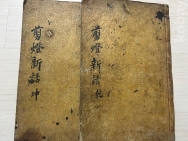 剪燈新話 坤
剪燈新話 乾